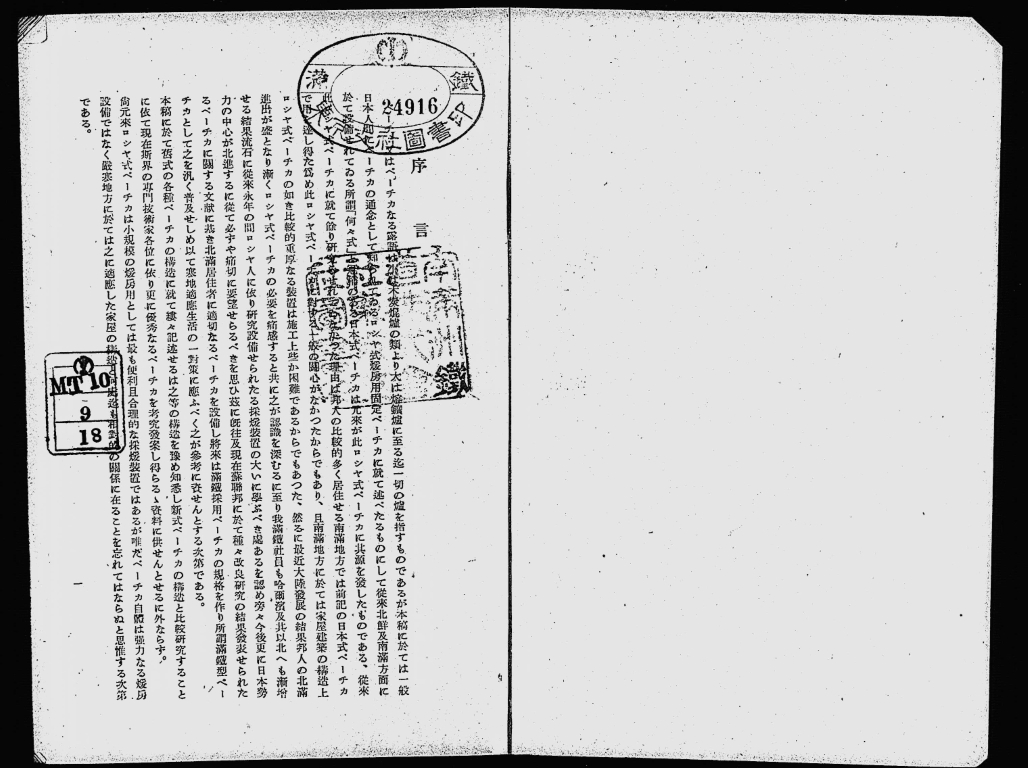 序言
ペーチカなる露語は小は木炭焜爐の類より大は熔鑛爐に至る迄一切の爐を指すものであるが本稿に於ては一般
日本人間にペーチカの通念として知られてゐるロシヤ式煖房用固定ペーチカに就て述べたるものにして從來北鮮及南滿方面に
於て設備されてゐる所謂「何々式」と稱する日本式ペーチカは元來が此ロシヤ式ペーチカに其源を發したものである、從來
ペーチカに就て餘り研究されなかつた理由は邦人の比較的多く居住せる南滿地方では前記の日本式ペーチカ
で用を達し得た爲め此ロシヤ式ペーチカに對する一般の關心がなかつたからでもあり、且南滿地方に於ては家屋建築の構造上
ロシヤ式ペーチカの如き比較的重厚なる裝置は施工上些か困難であるからでもあつた、然るに最近大陸發展の結果邦人の北滿
進出が盛となり漸くロシヤ式ペーチカの必要を痛感すると共に之が認識を深むるに至り我滿鐵社員も哈爾濱及其以北へも漸增
せる結果流石に從來永年の間ロシヤ人に依り研究設備せられたる採煖裝置の大いに學ぶべき處あるを認め旁々今後更に日本勢
力の中心が北進するに從て必ずや痛切に要望せらるべきを思ひ茲に旣往及現在蘇聯邦に於て種々改良研究の結果發表せられた
るペーチカに關する文獻に基き北滿居住者に適切なるペーチカを設備し將來は滿鐵採用ペーチカの規格を作り所謂滿鐵型ペー
チカとして之を汎く普及せしめ以て寒地適應生活の一對策に應ふべく之が參考に資せんとする次第である。
本稿に於て舊式の各種ペーチカの構造に就て縷々記述せるは之等の構造を豫め知悉し新式ペーチカの構造と比較研究すること
に依て現在斯界の專門技術家各位に依り更に優秀なるペーチカを考究發案し得らるゝ資料に供せんとせるに外ならず。
尙元來ロシヤ式ペーチカは小規模の煖房用としては最も便利且合理的な採煖裝置ではあるが唯だペーチカ自體は强力なる煖房
設備ではなく嚴寒地方に於ては之に適應した家屋の構造も相對的の關係に在ることを忘れてはならぬと思惟する次第
である。
一
24916
MT 10
9
18